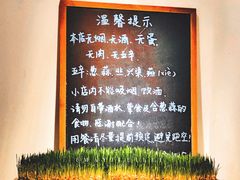 温馨提示
本店无烟、无酒、无蛋、
无肉、无五辛
五辛:葱、蒜、韭、兴渠、薤(xiè)
小店内不能吸烟、饮酒
请勿自带酒水、荤食及含葱蒜的
食物,感谢配合!
用餐请尽量提前预定,避免跑空!